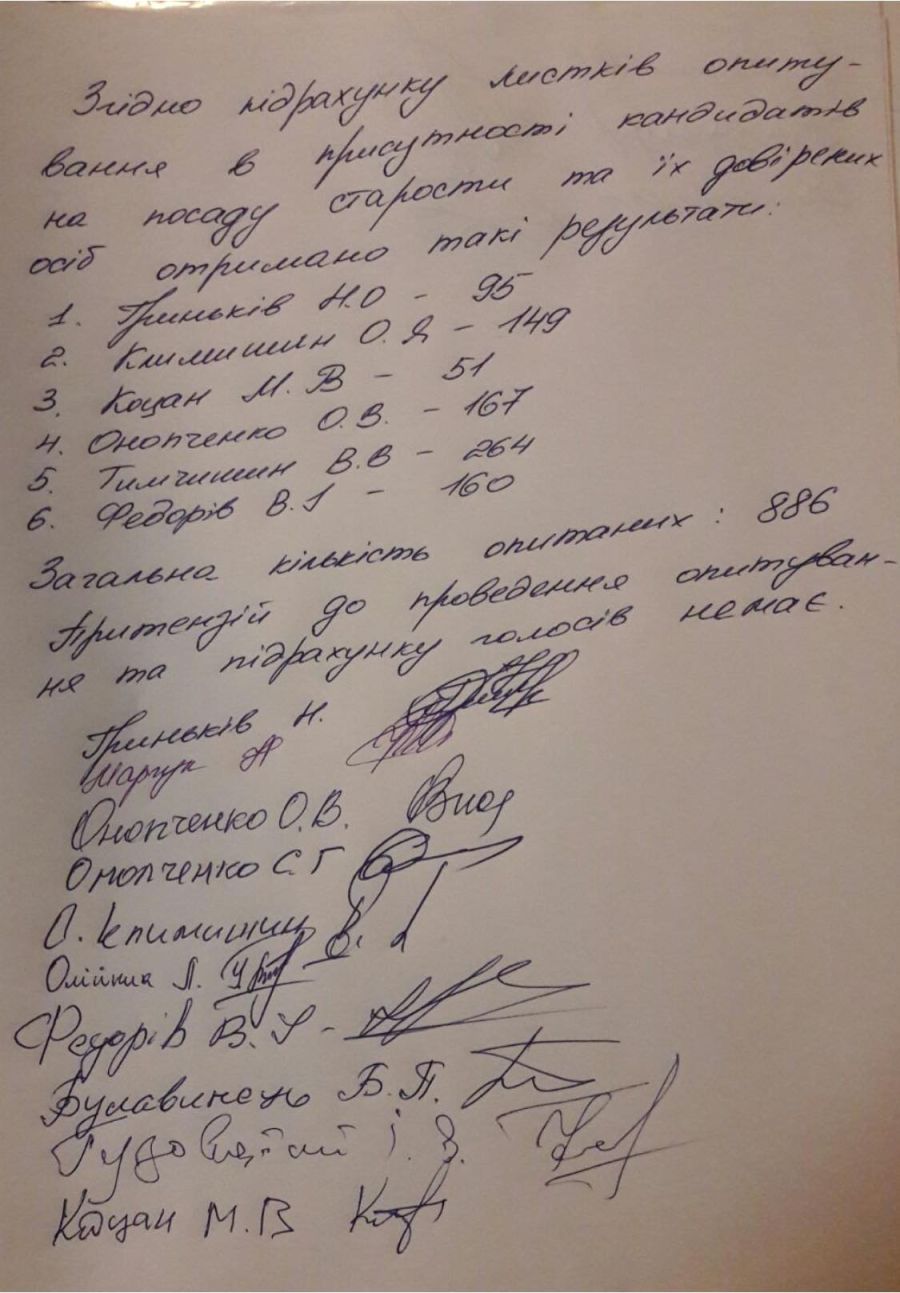 Згідно підрахунку листків опиту-
вання в присутності кандидатів
на посаду старости та їх довірених
осіб отримано такі результати:
1. Гриньків Н.О - 95
2. Климишин О.Я - 149
3. Коцан М.В - 51
4. Онопченко О.В. - 167
5. Тимчишин В.В - 264
6. Федорів В.І - 160
Загальна кількість опитаних: 886
Притензій до проведення опитуван-
ня та підрахунку голосів немає.
Гриньків Н.
Марчук А
Онопченко О.В.
Онопченко С.Г
О. Климишин
Олійник Л.
Федорів В.І -
Булавинець Б.П.
І. З.
Коцан М.В